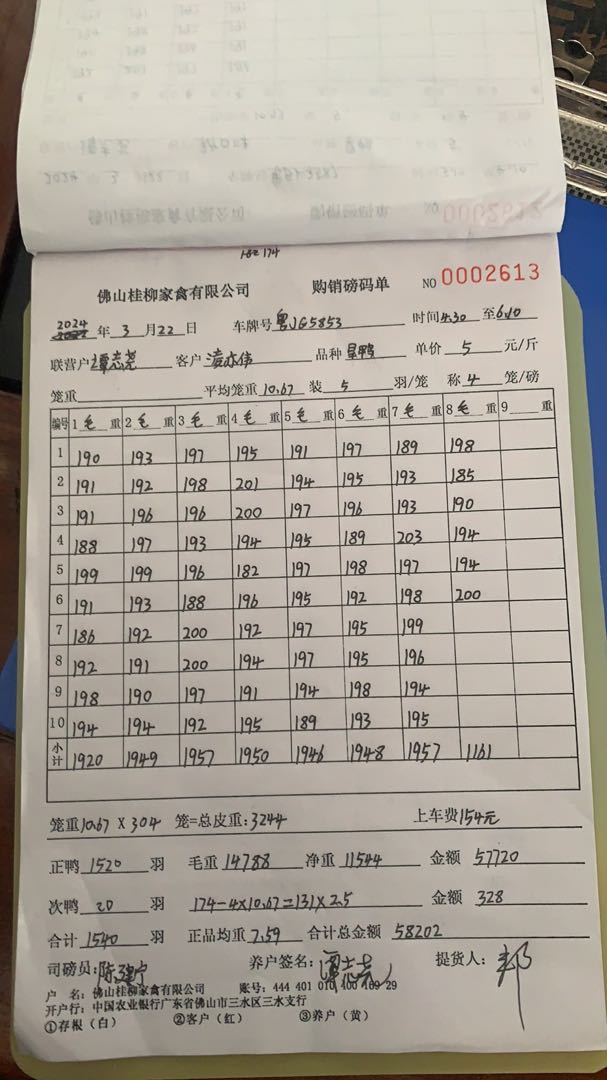 182 174
佛山桂柳家禽有限公司 购销磅码单 NO 0002613
2024 年 3 月 22 日 车牌号 粤JG5853 时间 4:30 至 6:10
联营户 谭志尧 客户 品种 单价 5 元/斤
笼重 平均笼重 10.67 装 5 羽/笼 称 4 笼/磅
编号 1 毛 重 2 毛 重 3 毛 重 4 毛 重 5 毛 重 6 毛 重 7 毛 重 8 毛 重 9 重
1 190 193 197 195 191 197 189 198
2 191 192 198 201 194 195 193 185
3 191 196 196 200 197 196 193 190
4 188 197 193 194 195 189 203 194
5 199 199 196 182 197 198 197 194
6 191 193 188 196 195 192 198 200
7 186 192 200 192 197 195 199
8 192 191 200 194 197 195 196
9 198 190 197 191 194 198 194
10 194 194 192 195 189 193 195
小计 1920 1949 1957 1950 1946 1948 1957 1161
笼重 10.67 X 304 笼=总皮重: 3244 上车费 154元
正鸭 1520 羽 毛重 14788 净重 11544 金额 57720
次鸭 20 羽 174-4×10.67=131×2.5 金额 328
合计 1540 羽 正品均重 7.59 合计总金额 58202
司磅员: 养户签名: 谭志尧 提货人:
户 名: 佛山桂柳家禽有限公司 账号: 444 401 010 400 169 29
开户行: 中国农业银行广东省佛山市三水区三水支行
①存根（白） ②客户（红） ③养户（黄）